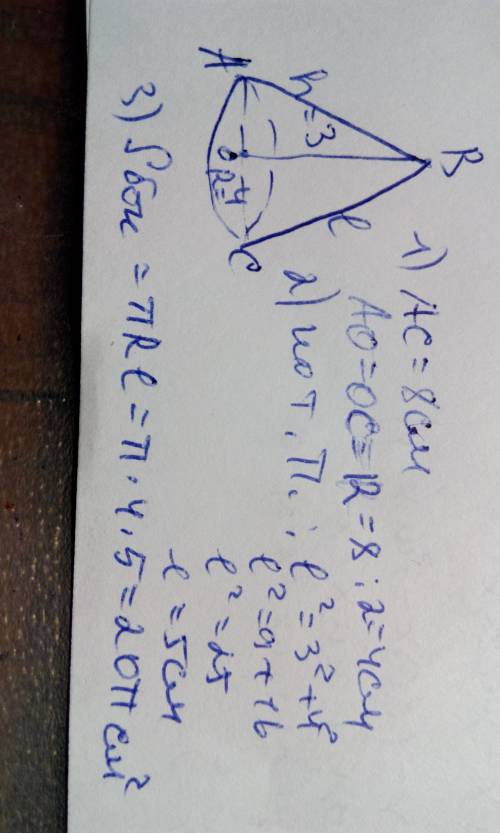 B
h=3
l
A
O
R=4
C
1) AC = 8см
AO=OC=R=8:2=4см
2) по т. П.: l²=3²+4²
l²=9+16
l²=25
l=5см
3) Sбок = πRl=π·4·5=20π см²